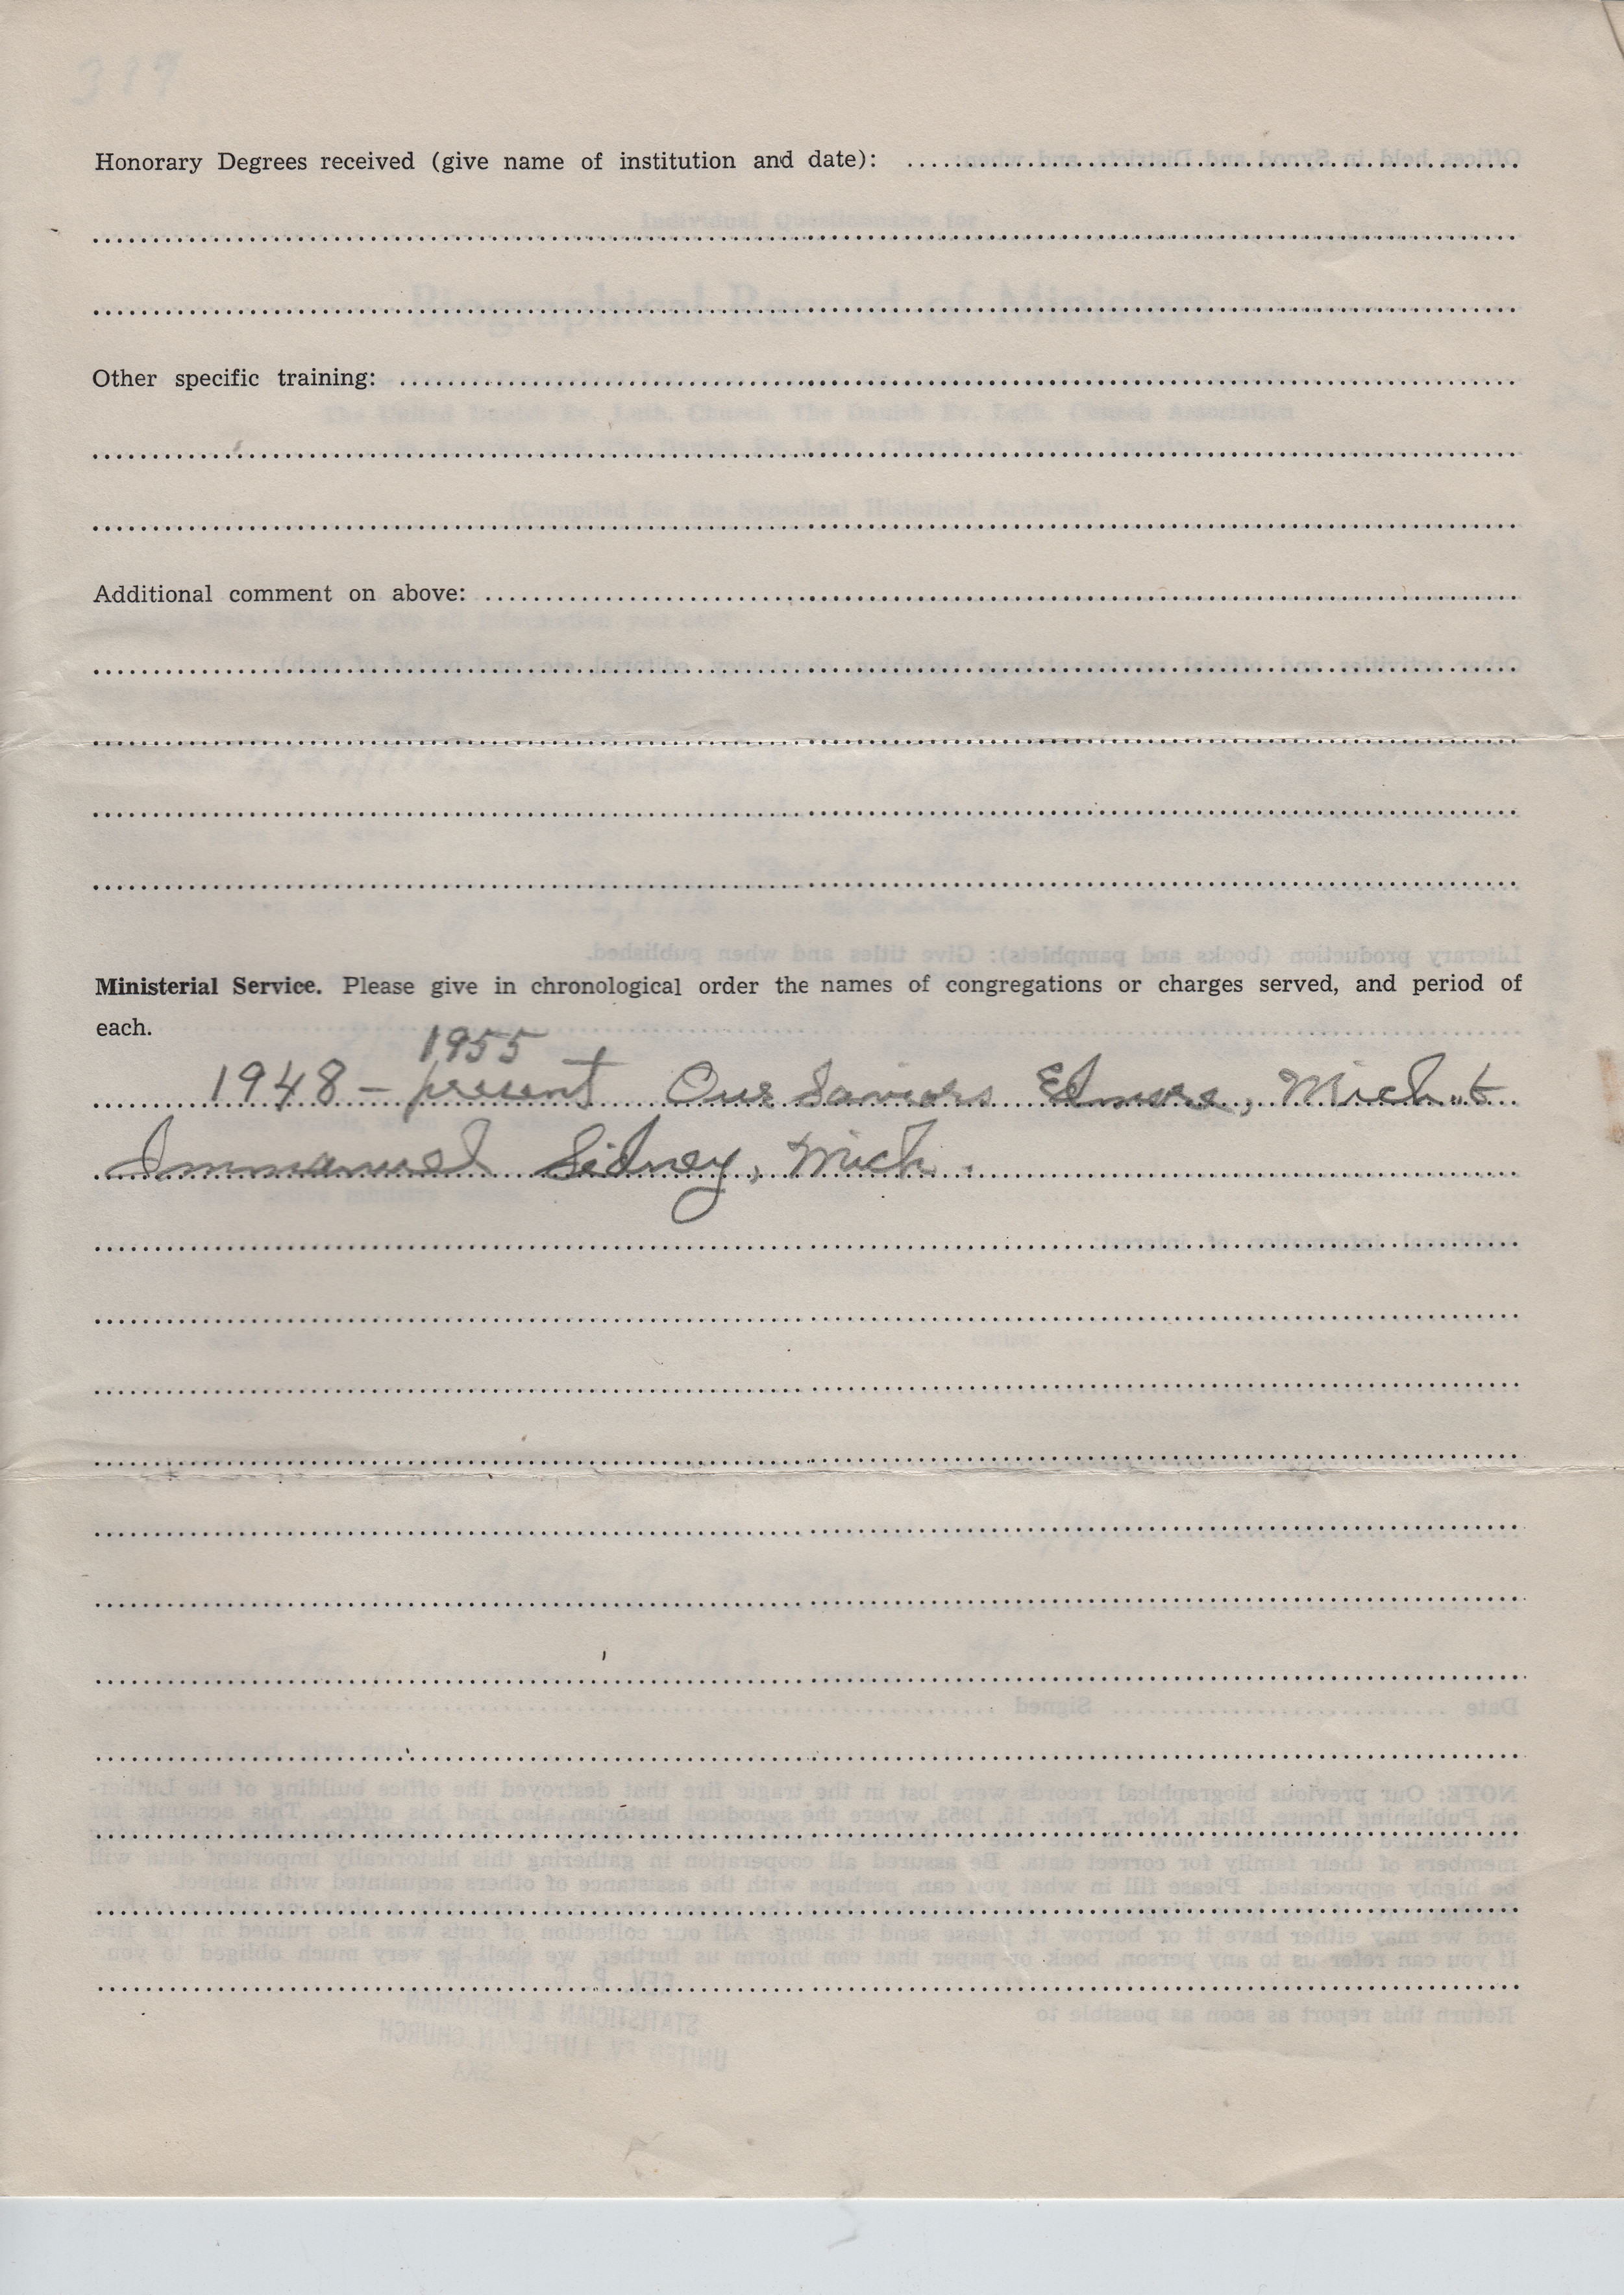 319
Honorary Degrees received (give name of institution and date):
Other specific training:
Additional comment on above:
Ministerial Service. Please give in chronological order the names of congregations or charges served, and period of
each.
1955
1948 - present Our Saviors Edmore, Mich. &
Immanuel Sidney, Mich.